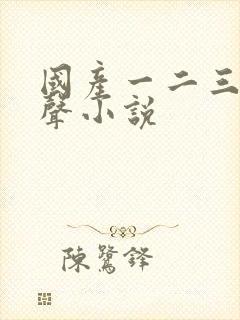 國産一二三
聲小説
陳鷺鋒